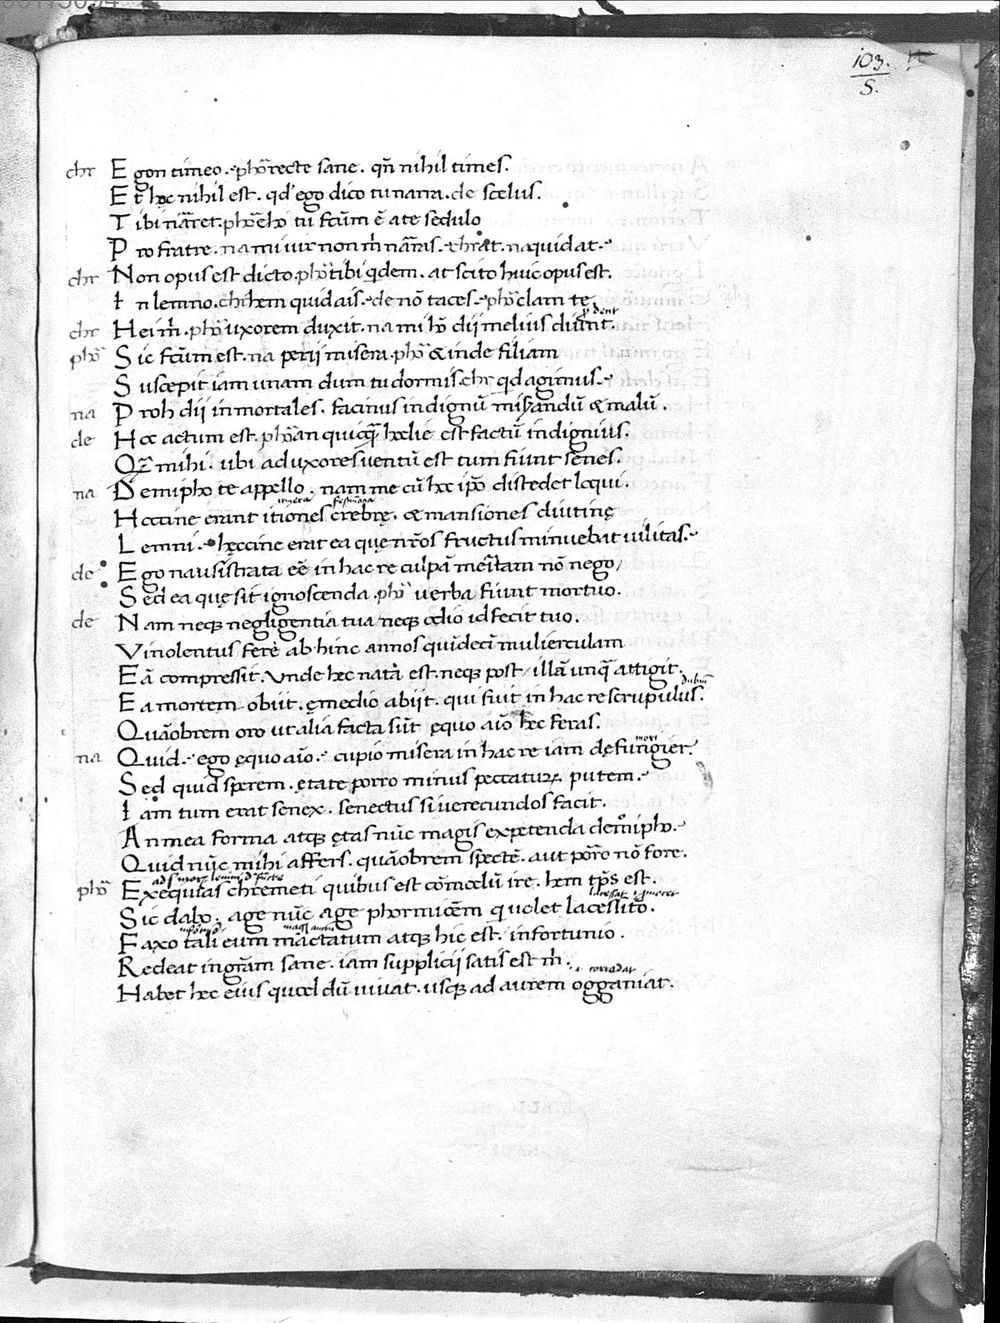 103.
S.
chr Egon timeo. phõ recte sane. qñ nihil times.
Et hoc nihil est. qd' ego dico tu narra. de scelus.
Tibi nãret. phõ eho tu fcũm ẽ a te sedulo
Pro fratre. na mi vir non m̃ nãras. chr at. na quid at.
chr Non opus est dicto. phõ tibi qdem. at scito huic opus est.
In lemno. chr hem quid ais. de nõ taces. phõ clam te
chr Hei m̃. phõ uxorem duxit. na mi hõ dii melius duint.
phõ Sic fcũm est. na perii misera. phõ & inde filiam
Suscepit iam unam dum tu dormis. chr qd agimus.
na Proh dii inmortales. facinus indignũ miserandũ & malũ.
de Hoc actum est. phõ an quicq̃ hodie est factũ indignius.
Qr̃ mihi. ubi ad uxores uentũ est tum fiunt senes.
na Demipho te appello. nam me cũ hoc ip̃o distedet loqui.
Heccine erant itiones crebrę. & mansiones diutinę
Lemni. hęccine erat ea que nr̃os fructus minuebat uilitas.
de Ego nausistrata eẽ in hac re culpã meritam nõ nego
Sed ea quę sit ignoscenda. phõ uerba fiunt mortuo.
de Nam neqȝ negligentia tua neqȝ odio id fecit tuo.
Vinolentus fere ab hinc annos quĩdecĩ mulierculam
Eã compressit. Vnde hec nata est. neqȝ post illã unq̃ attigit.
Ea mortem obiit. ę medio abiit. qui fuit in hac re scrupulus.
Quãobrem oro ut alia facta sũt ęquo aĩo hec feras.
na Quid. ego ęquo aĩo. cupio misera in hac re iam defungier.
Sed quid sperem. ętate porro minus peccaturȝ putem.
Iam tum erat senex. senectus si uerecundos facit.
An mea forma atqȝ ętas nũc magis expetenda demipho.
Quid nũc mihi affers. quãobrem spectẽ. aut porro nõ fore.
phõ Exequias chremeti quibus est cõmodũ ire. hem tp̃s est.
Sic dabo. age nũc age phormionẽm q uolet lacessito.
Faxo tali eum mactatum atqȝ hic est. infortunio.
Redeat in grãm sane. iam supplicii satis est m̃.
Habet hec eius quod dũ uiuat. usqȝ ad aurem ogganiat.